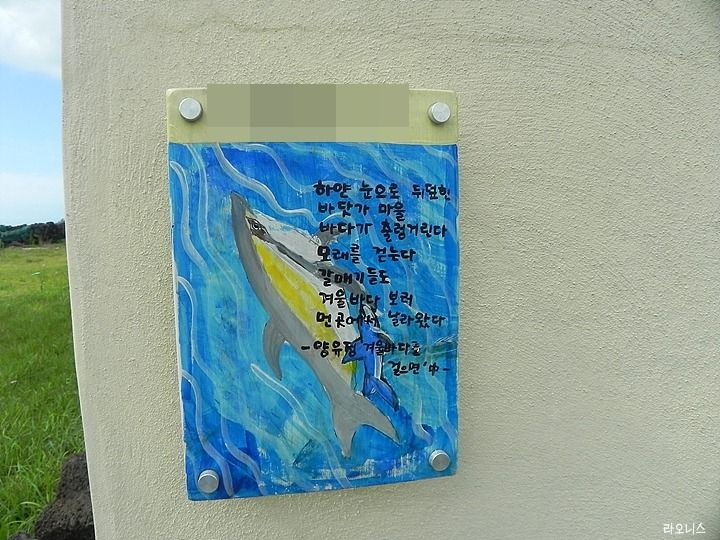 하얀 눈으로 뒤덮힌
바닷가 마을
바다가 출렁거린다
모래를 걷는다
갈매기들도
겨울바다 보러
먼곳에서 날라왔다
-양유정 겨울바다를
걸으면 中-
라오니스